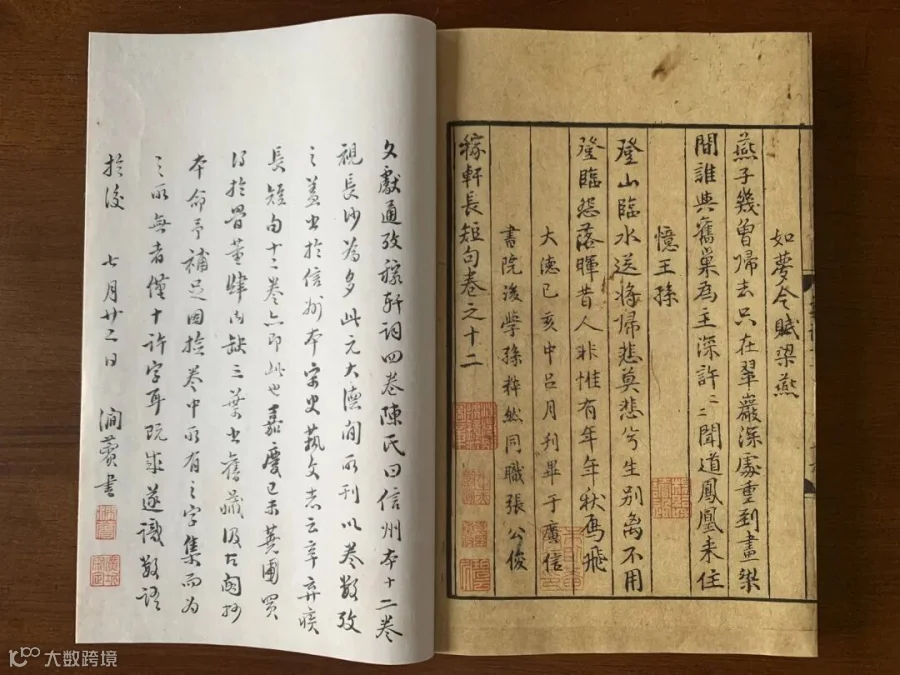 如夢令賦梁燕
燕子幾曾歸去只在翠巖深處重到畫梁
間誰與舊巢為主深許〻聞道鳳凰来住
憶王孫
登山臨水送將歸悲莫悲兮生別離不用
登臨怨落暉昔人非惟有年年秋鴈飛
大德己亥中呂月刊畢于廣信
書院後學孫粹然同職張公俊
稼軒長短句卷之十二
文獻通攷稼軒詞四卷陳氏曰信州本十二卷
視長沙為多此元大德間所刊以卷數攷
之盖出於信州本宋史藝文志云辛弃疾
長短句十二卷亦即此也嘉慶己未蕘圃買
得於骨董肆內缺三葉出舊藏汲古閣抄
本命予補足因撿卷中所有之字集而為
之所無者僅十許字耳既成遂識數語
於後 七月廿二日 澗薲書
大数跨境